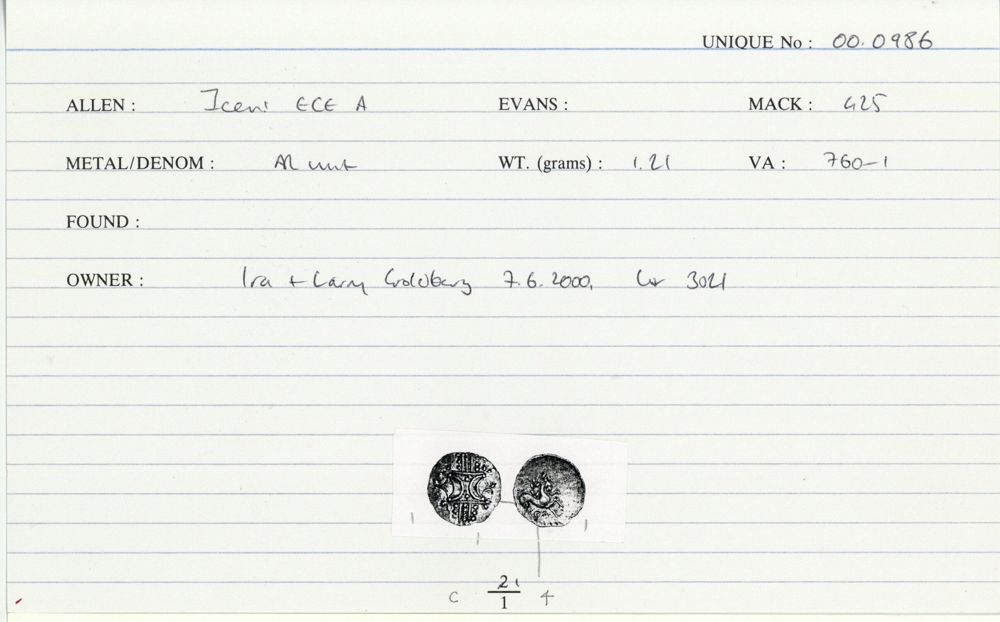 UNIQUE No : 00.0986
ALLEN : Iceni ECE A EVANS : MACK : 425
METAL/DENOM : AR unit WT. (grams) : 1.21 VA : 760-1
FOUND :
OWNER : Ira + Larry Goldberg 7.6.2000, lot 3021
C 21 4
1